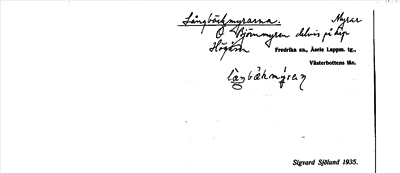 Långbäckmyrarna. Myrar
O Björnmyren delvis på kap
Högåsen Fredrika sn., Åsele Lappm. tg.,
Västerbottens län.
Sigvard Sjölund 1935.